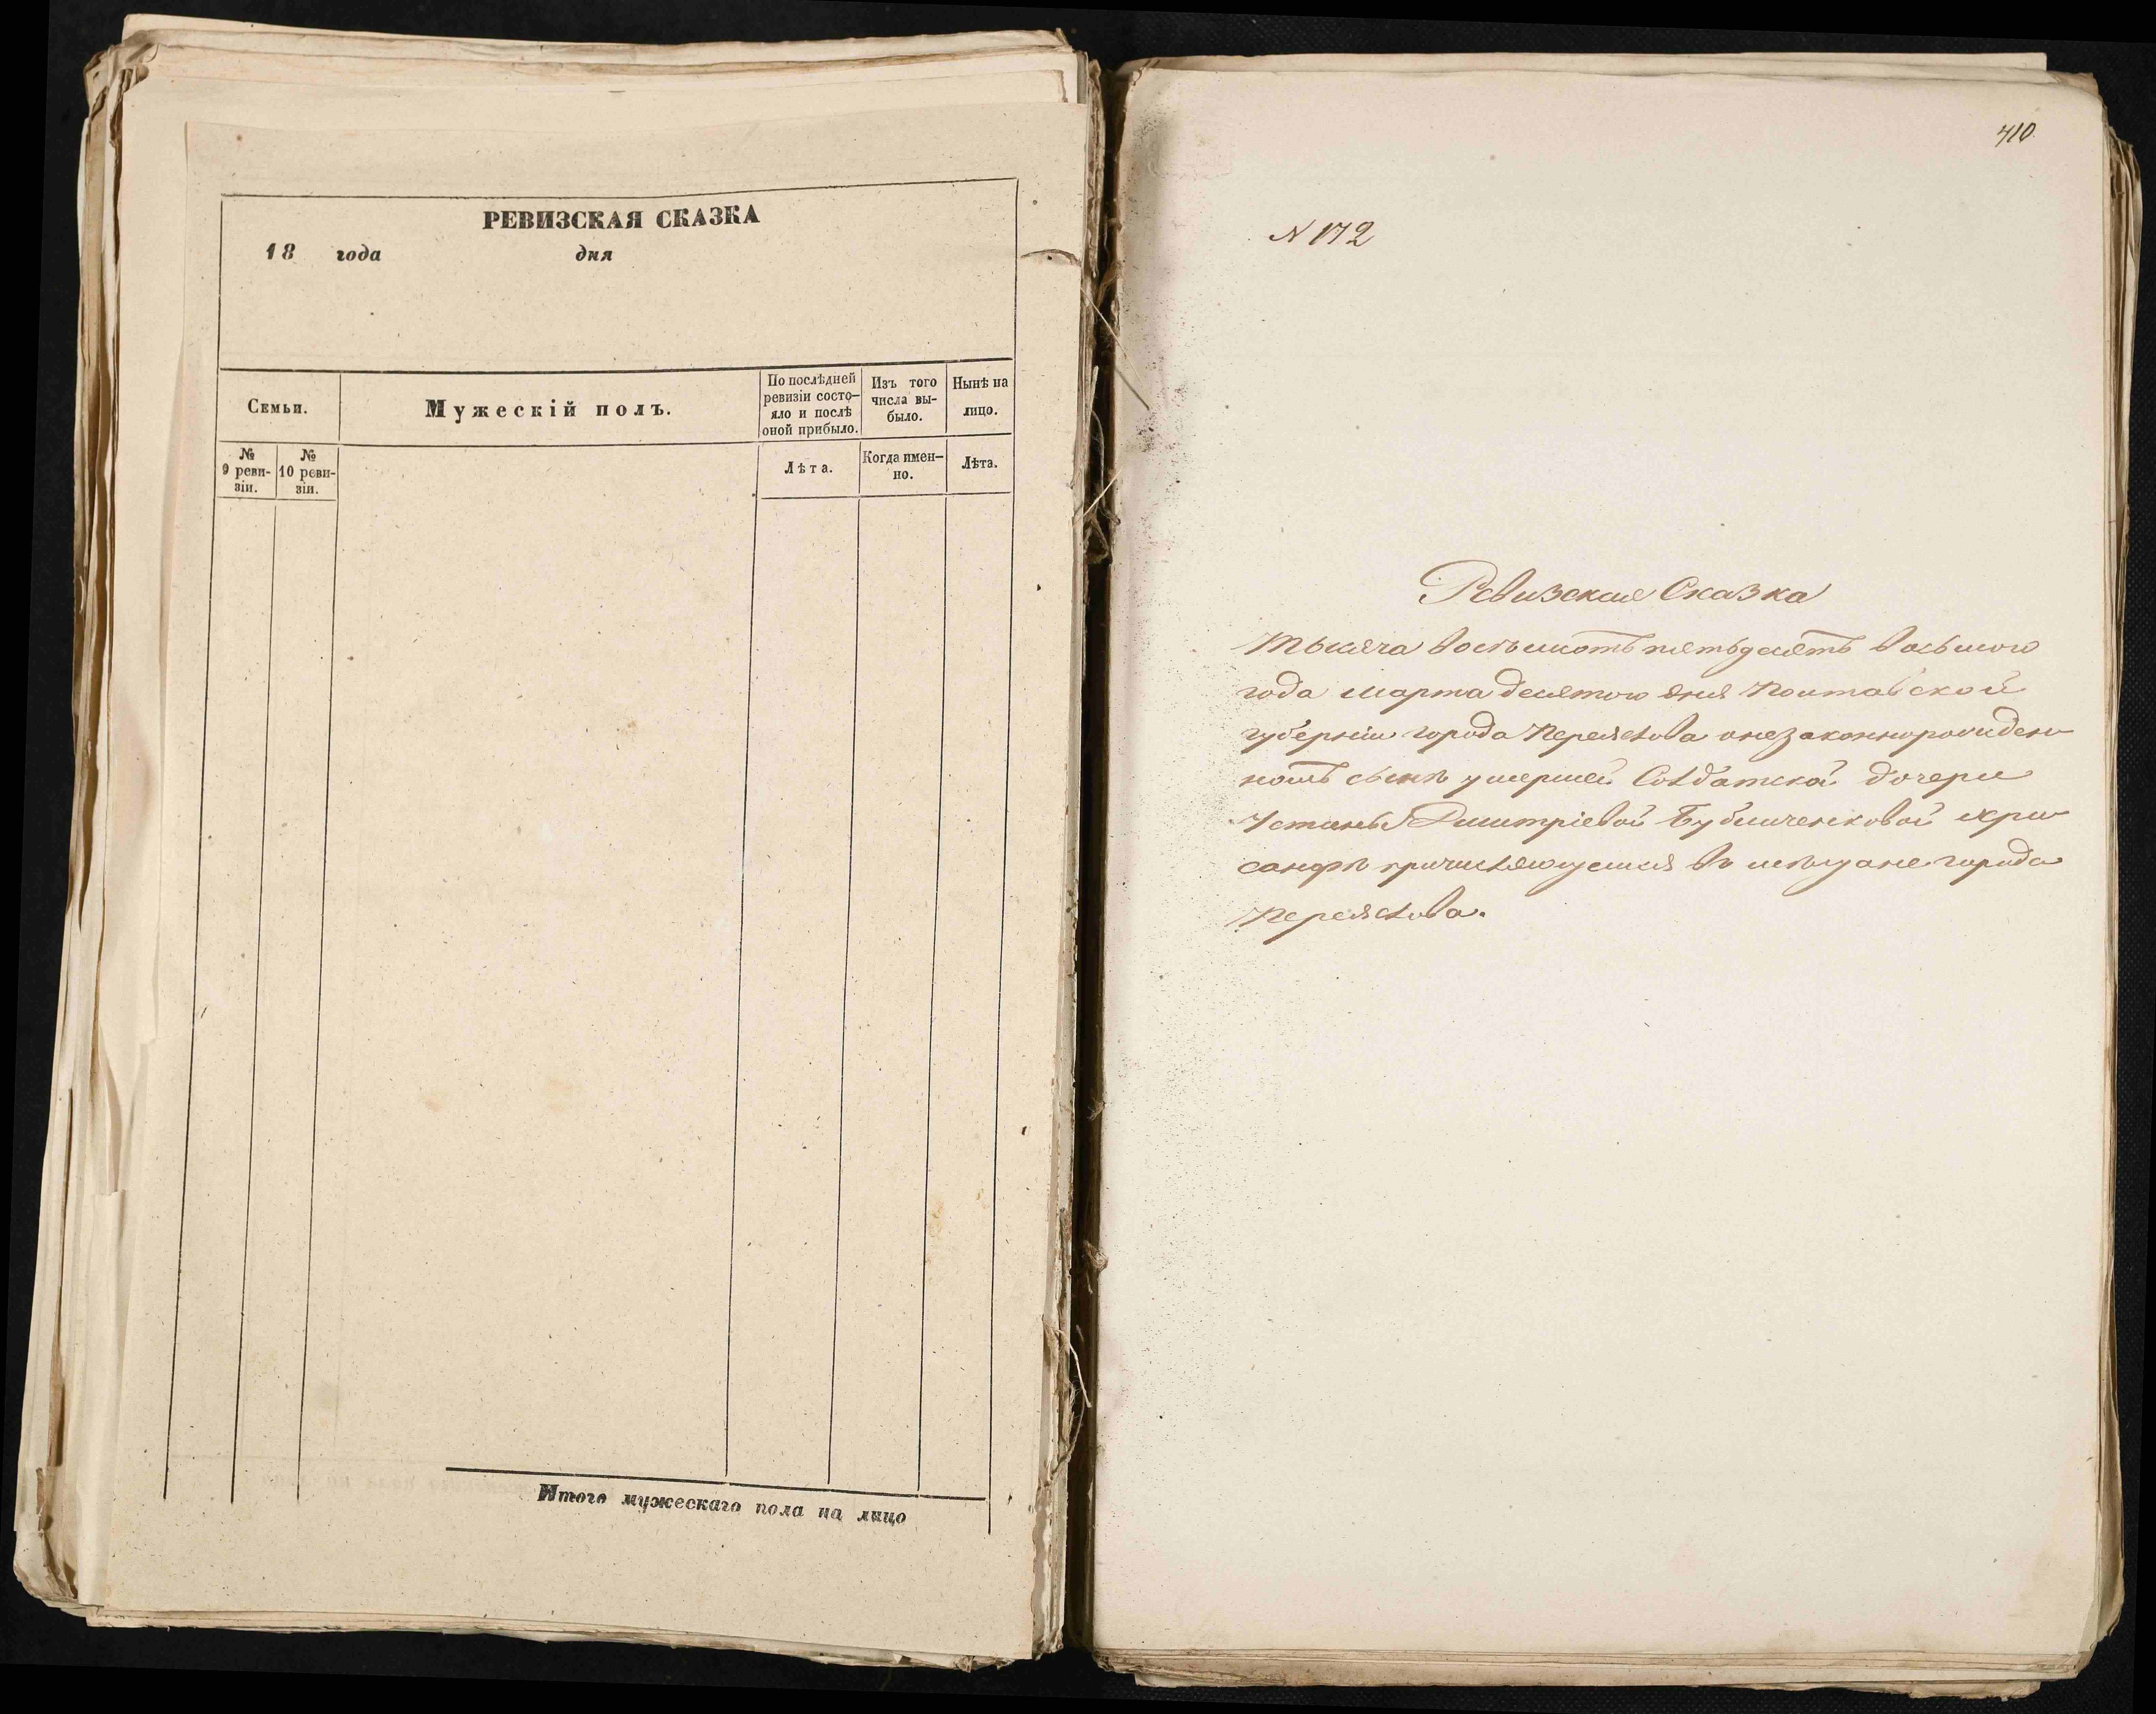 РЕВИЗСКАЯ СКАЗКА
18 года дня
Семьи.
Мужескій полъ.
По послѣдней
ревизіи состо-
яло и послѣ
оной прибыло.
Изъ того
числа вы-
было.
Нынѣ на
лицо.
№
9 реви-
зіи.
№
10 реви-
зіи.
Лѣта.
Когда имен-
но.
Лѣта.
Итого мужескаго пола на лицо
410
N 172
Ревизская Сказка
Тысяча восемьсотъ пятьдесятъ восьмого
года марта десятого дня Полтавской
губерніи города Переяслова онезаконнорожден
номъ сынѣ умершей Солдатской дочери
Устиньи Дмитріевой хри
санфѣ причисляющемся въ мѣщане города
Переяслова.